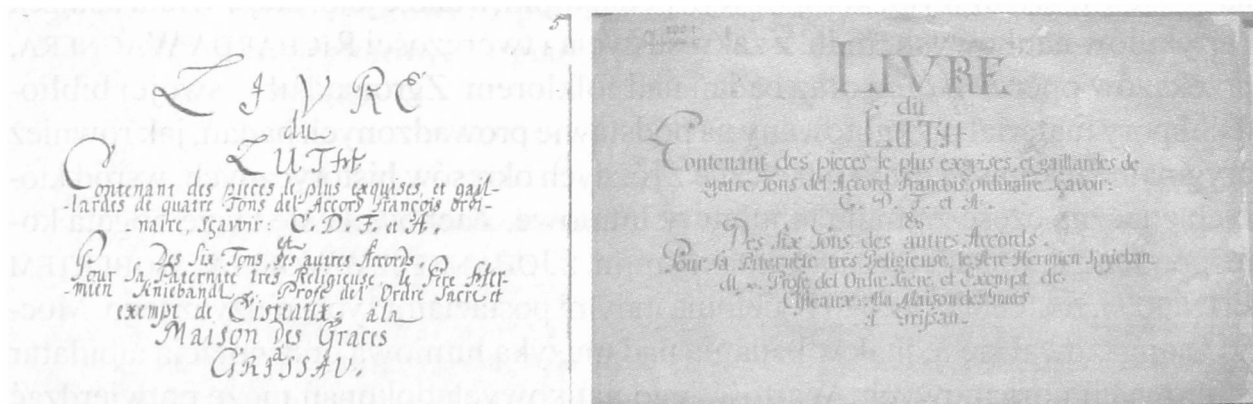 5
LIVRE
du
LUTH
Contenant des pieces le plus exquises, et gail-
lardes de quatre Tons del' Accors François ordi-
naire, sçavoir: C. D. F. et A.
et
Des Six Tons des autres Accords,
Pour Sa Paternite tres Religieuse, le Pere Her-
mien Kniebandl Profe de l' Ordre Sacre et
exempt de Cisteaux, âla
Maison des Graces
à
GRISSAV.
LIVRE
du
LUTH
Contenant des pieces le plus exqvises, et gaillardes de
qvatre Tons del Accord François ordinaire Sçavoir:
C. D. F. et A.
Des Six Tons des autres Accords.
Pour sa Paternete tres Religieuse, le Pere Hermien Knieban
Profe del Ordre Sacre et Exempt de
Cisteaux Ala Maison des Graces
a Grissau